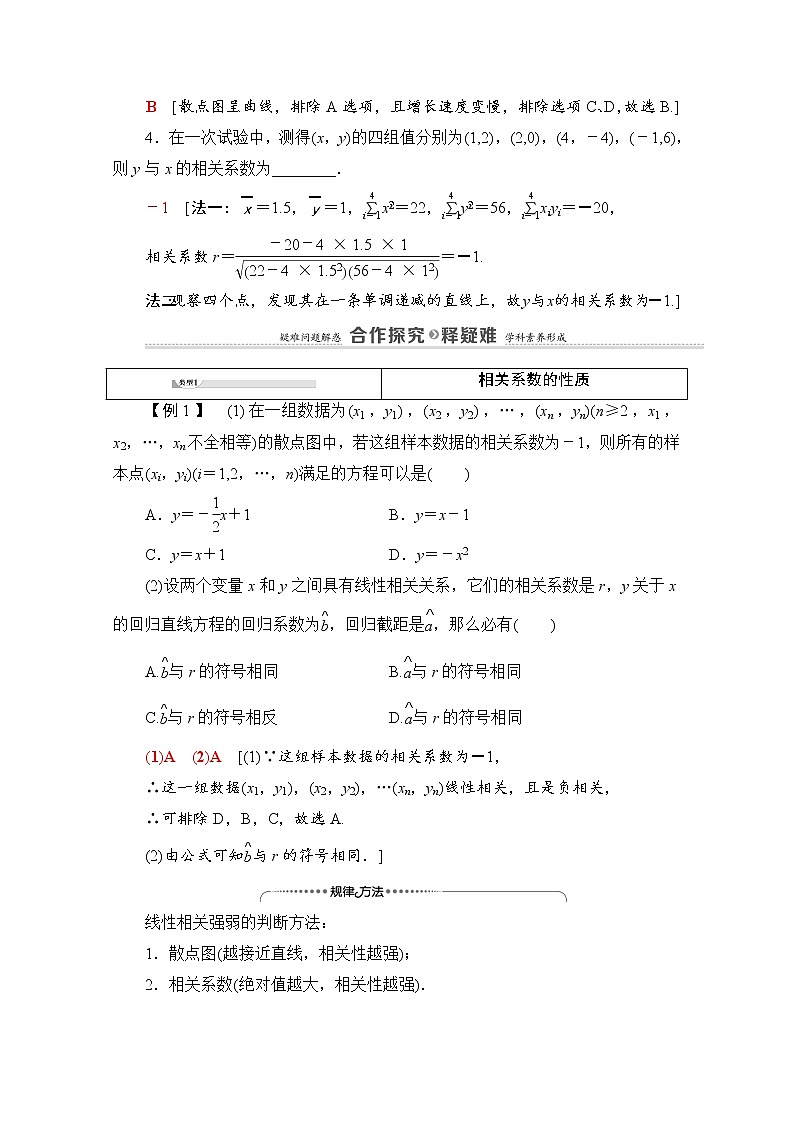 B [散点图呈曲线，排除 A 选项，且增长速度变慢，排除选项 C、D，故选 B.]
4．在一次试验中，测得(x，y)的四组值分别为(1,2)，(2,0)，(4，－4)，(－1,6)，
则 y 与 x 的相关系数为________．
－1 [法一：x̄＝1.5，ȳ＝1，∑⁴ᵢ₌₁xᵢ²＝22，∑⁴ᵢ₌₁yᵢ²＝56，∑⁴ᵢ₌₁xᵢyᵢ＝－20，
相关系数 r＝(－20－4 × 1.5 × 1)/√((22－4 × 1.5²)(56－4 × 1²))＝－1.
法二：观察四个点，发现其在一条单调递减的直线上，故 y 与 x 的相关系数为－1.]
疑难问题解惑 合作探究 释疑难 学科素养形成
类型1 相关系数的性质
【例 1】 (1)在一组数据为(x₁，y₁)，(x₂，y₂)，…，(xₙ，yₙ)(n≥2，x₁，
x₂，…，xₙ不全相等)的散点图中，若这组样本数据的相关系数为－1，则所有的样
本点(xᵢ，yᵢ)(i＝1,2，…，n)满足的方程可以是( )
A．y＝－1/2x＋1 B．y＝x－1
C．y＝x＋1 D．y＝－x²
(2)设两个变量 x 和 y 之间具有线性相关关系，它们的相关系数是 r，y 关于 x
的回归直线方程的回归系数为b̂，回归截距是â，那么必有( )
A.b̂与 r 的符号相同 B.â与 r 的符号相同
C.b̂与 r 的符号相反 D.â与 r 的符号相同
(1)A (2)A [(1)∵这组样本数据的相关系数为－1，
∴这一组数据(x₁，y₁)，(x₂，y₂)，…(xₙ，yₙ)线性相关，且是负相关，
∴可排除 D，B，C，故选 A.
(2)由公式可知b̂与 r 的符号相同．]
规律方法
线性相关强弱的判断方法：
1．散点图(越接近直线，相关性越强)；
2．相关系数(绝对值越大，相关性越强)．